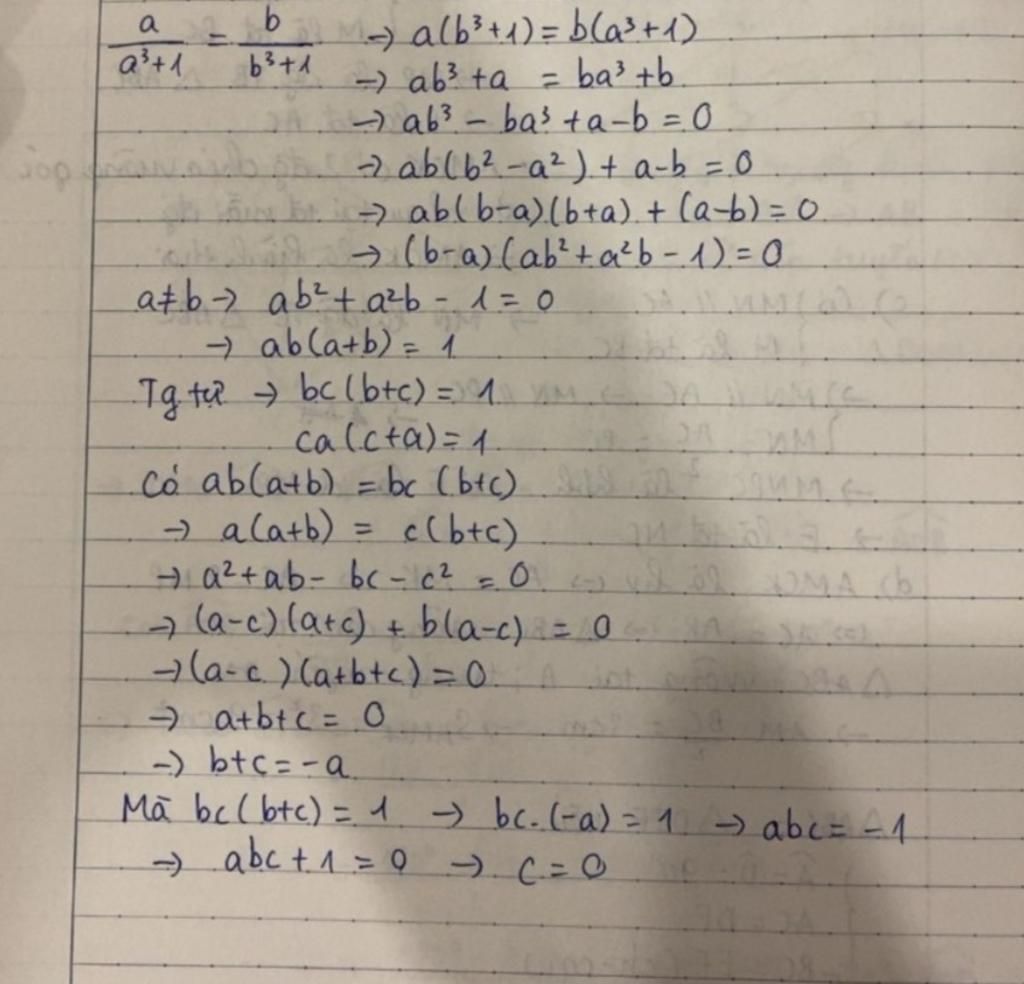 a/(a³+1) = b/(b³+1) → a(b³+1) = b(a³+1)
→ ab³ + a = ba³ + b
→ ab³ - ba³ + a - b = 0
→ ab(b² - a²) + a - b = 0
→ ab(b-a)(b+a) + (a-b) = 0
→ (b-a)(ab² + a²b - 1) = 0
a≠b → ab² + a²b - 1 = 0
→ ab(a+b) = 1
Tg tự → bc(b+c) = 1
ca(c+a) = 1
Có ab(a+b) = bc(b+c)
→ a(a+b) = c(b+c)
→ a² + ab - bc - c² = 0
→ (a-c)(a+c) + b(a-c) = 0
→ (a-c)(a+b+c) = 0
→ a+b+c = 0
→ b+c = -a
Mà bc(b+c) = 1 → bc.(-a) = 1 → abc = -1
→ abc + 1 = 0 → C = 0